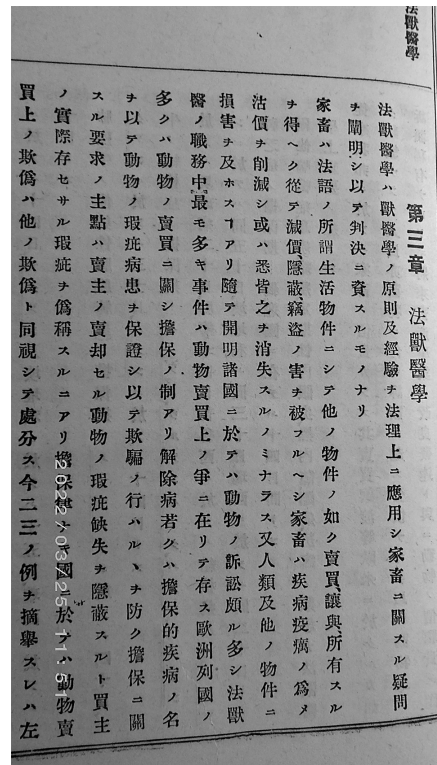 法獸醫學
第三章　法獸醫學
法獸醫學ハ獸醫學ノ原則及經驗ヲ法理上ニ應用シ家畜ニ關スル疑問
ヲ闡明シ以テ判決ニ資スルモノナリ
家畜ハ法語ノ所謂生活物件ニシテ他ノ物件ノ如ク賣買、讓與、所有スル
ヲ得ヘク從テ減價、隱蔽、竊盜ノ害ヲ被フルヘシ家畜ハ疾病疫癘ノ爲メ
沽價ヲ削減シ或ハ悉皆之ヲ消失スルノミナラス又人類及他ノ物件ニ
損害ヲ及ホスヿアリ隨テ開明諸國ニ於テハ動物ノ訴訟頗ル多シ法獸
醫ノ職務中最モ多キ事件ハ動物賣買上ノ爭ニ在リテ存ス歐洲列國ノ
多クハ動物ノ賣買ニ關シ擔保ノ制アリ解除病若クハ擔保的疾病ノ名
ヲ以テ動物ノ瑕疵病患ヲ保證シ以テ欺騙ノ行ハルヽヲ防ク擔保ニ關
スル要求ノ主點ハ賣主ノ賣却セル動物ノ瑕疵缺失ヲ隱蔽スルト買主
ノ實際存セサル瑕疵ヲ僞稱スルニアリ擔保律ナキ國ニ於テハ動物賣
買上ノ欺僞ハ他ノ欺僞ト同視シテ處分ス今二三ノ例ヲ摘舉スレハ左
2022/03/25 11:51